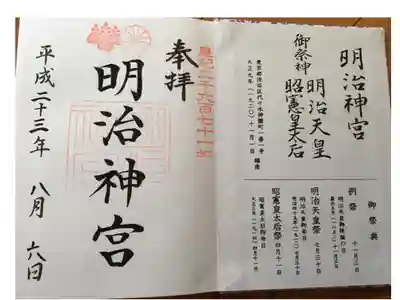 明治神宮
御祭神 明治天皇
昭憲皇太后
東京都渋谷区代々木神園町一番一号
大正九年(一九二〇)十一月一日 鎮座
御祭典
例祭 十一月三日
明治天皇祭 七月三十日
昭憲皇太后祭 四月十一日
大正三年(一九一四)四月十一日
皇紀二千六百七十一年
奉拝
明治神宮
平成二十三年 八月 六日